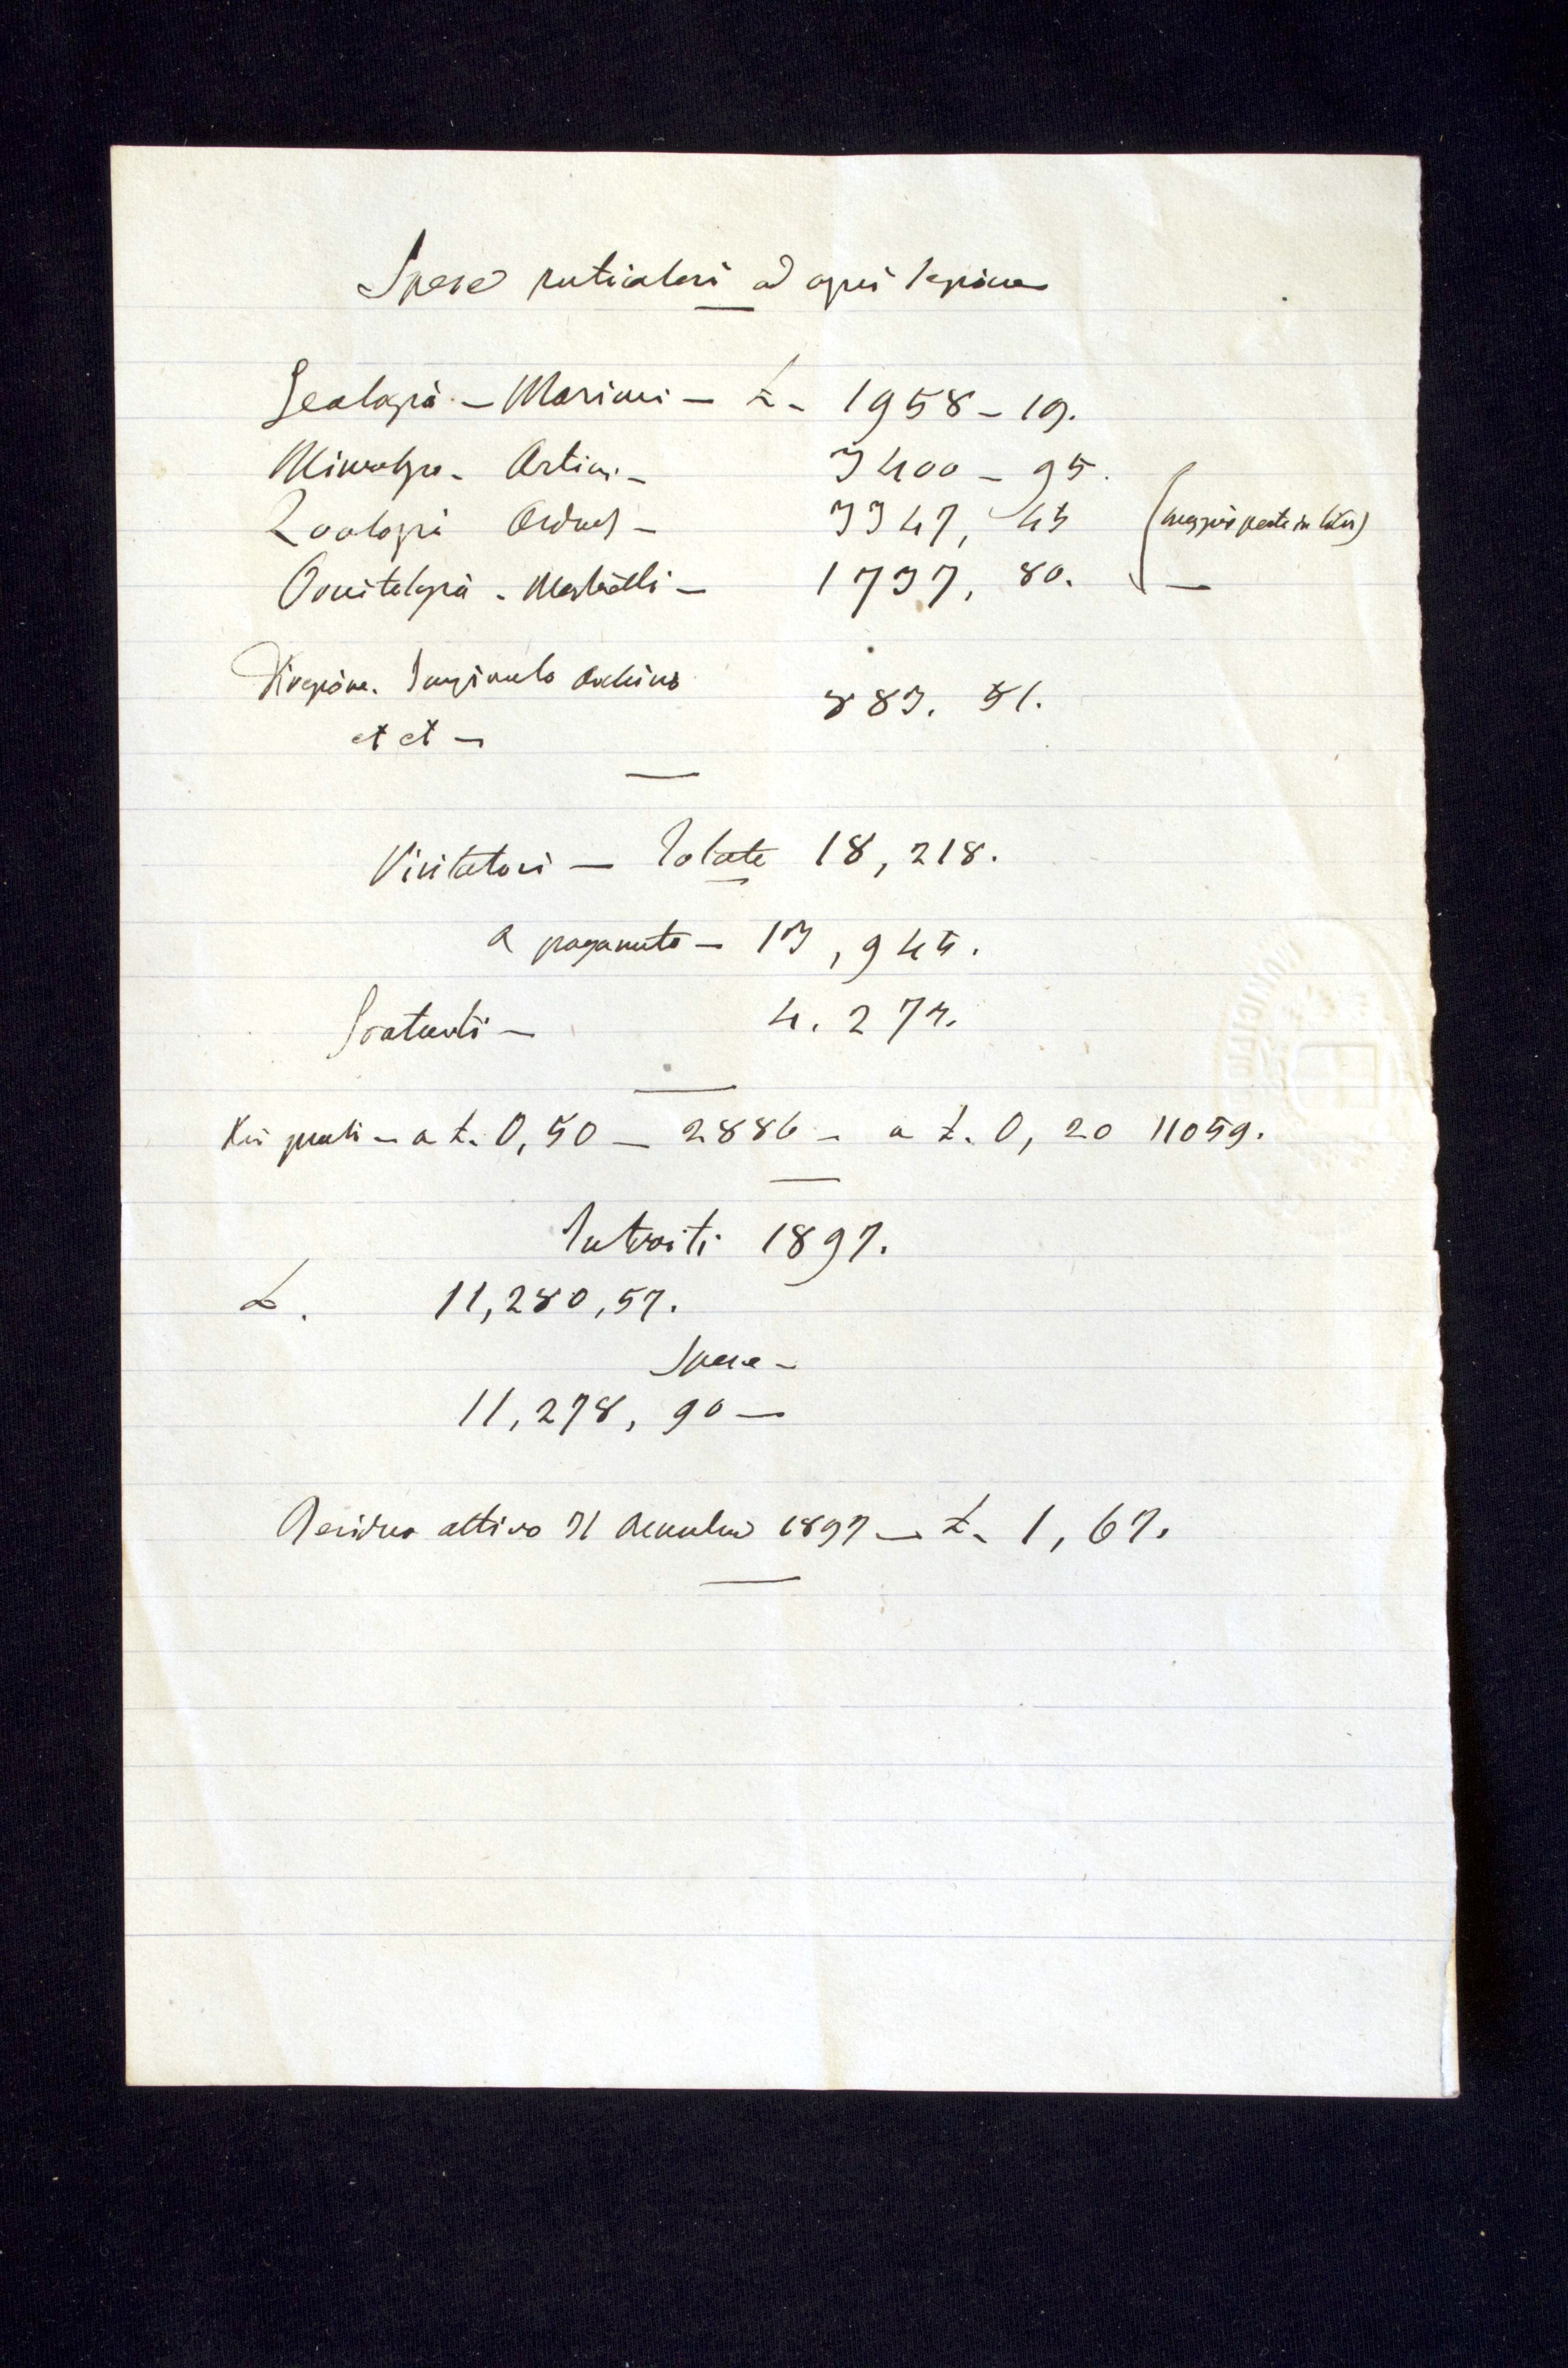 Spese particolari ad ogni sezione
Geologia - Mariani - L. 1958 - 19.
Mineralogia - Artini - 3400 - 95.
Zoologia 3347, 45 (maggior parte in
Ornitologia - Martorelli - 1737, 80. —
Direzione. 883. 51.
et et —
Visitatori — Totale 18,218.
A pagamento — 13,945.
Gratuiti — 4.273.
Dei quali - a L. 0,50 — 2886 - a L. 0,20 11059.
Introiti 1897.
L. 11,280,57.
Spese -
11,278,90 —
Residuo attivo 31 Decembre 1897 — L. 1,67.